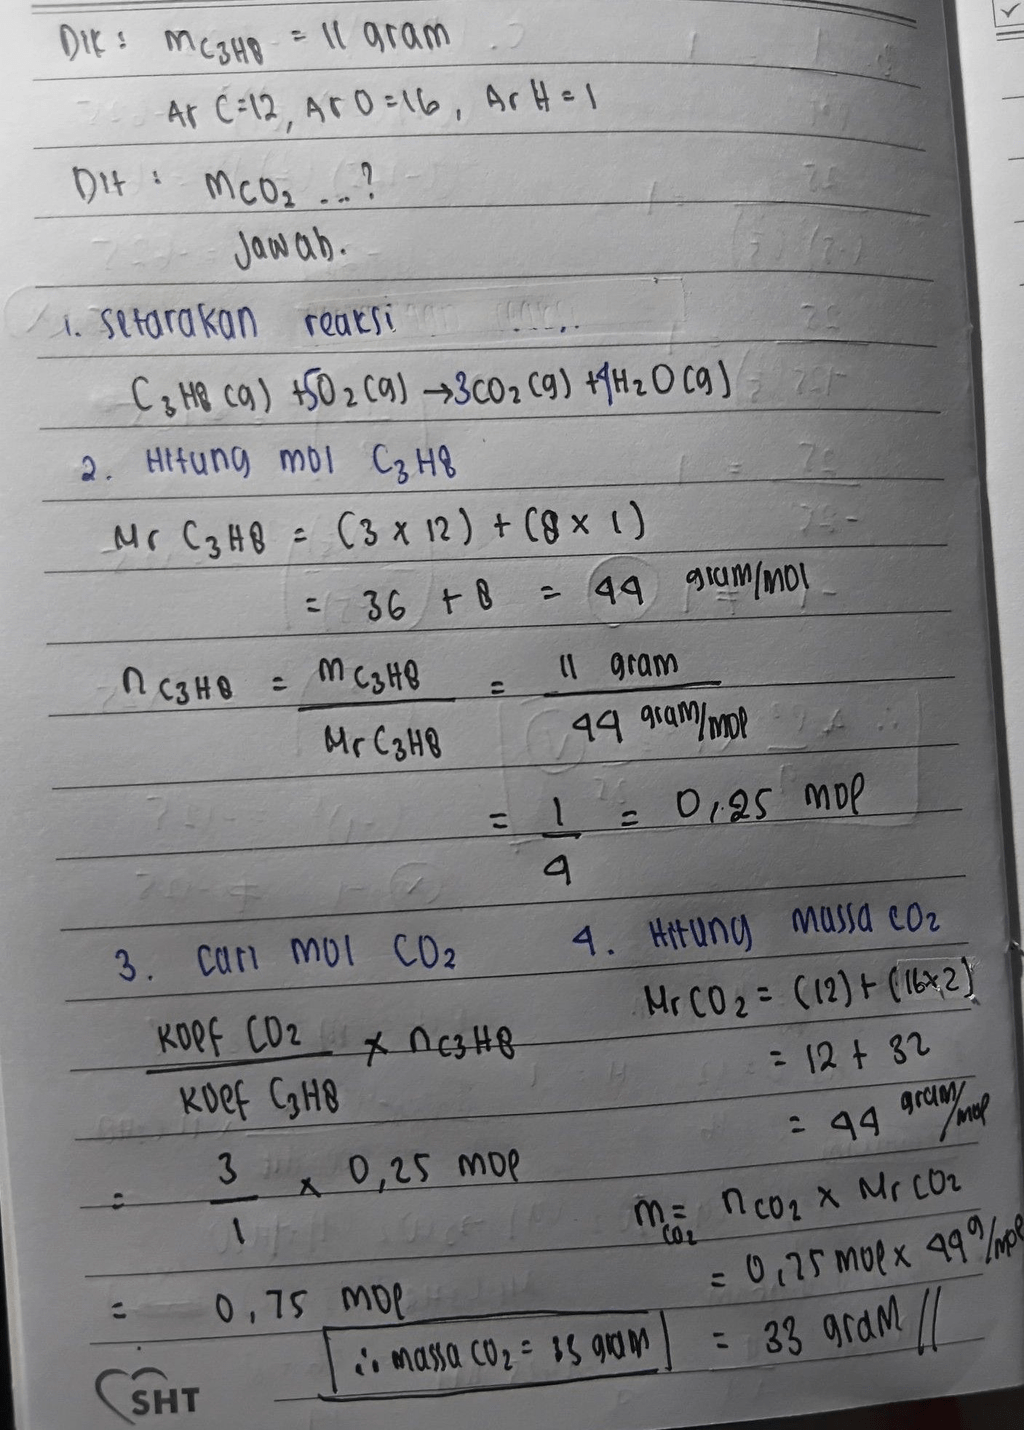 Dik : mC3H8 = 11 gram
Ar C=12, Ar O=16, Ar H=1
Dit : mCO2 ...?
Jawab.
1. setarakan reaksi
C3H8 (g) +5O2 (g) →3CO2 (g) +4H2O (g)
2. Hitung mol C3H8
Mr C3H8 = (3 x 12) + (8 x 1)
= 36 + 8 = 44 gram/mol
n C3H8 = m C3H8 / Mr C3H8 = 11 gram / 44 gram/mol
= 1/4 = 0,25 mol
3. cari mol CO2
koef CO2 / koef C3H8 x nC3H8
= 3/1 x 0,25 mol
= 0,75 mol
4. Hitung massa CO2
Mr CO2 = (12) + (16x2)
= 12 + 32
= 44 gram/mol
m CO2 = n CO2 x Mr CO2
= 0,75 mol x 44 g/mol
= 33 gram //
∴ massa CO2 = 33 gram
SHT